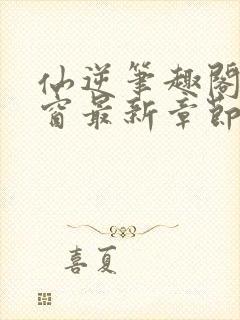 仙逆笔趣阁
窗最新章节
喜夏